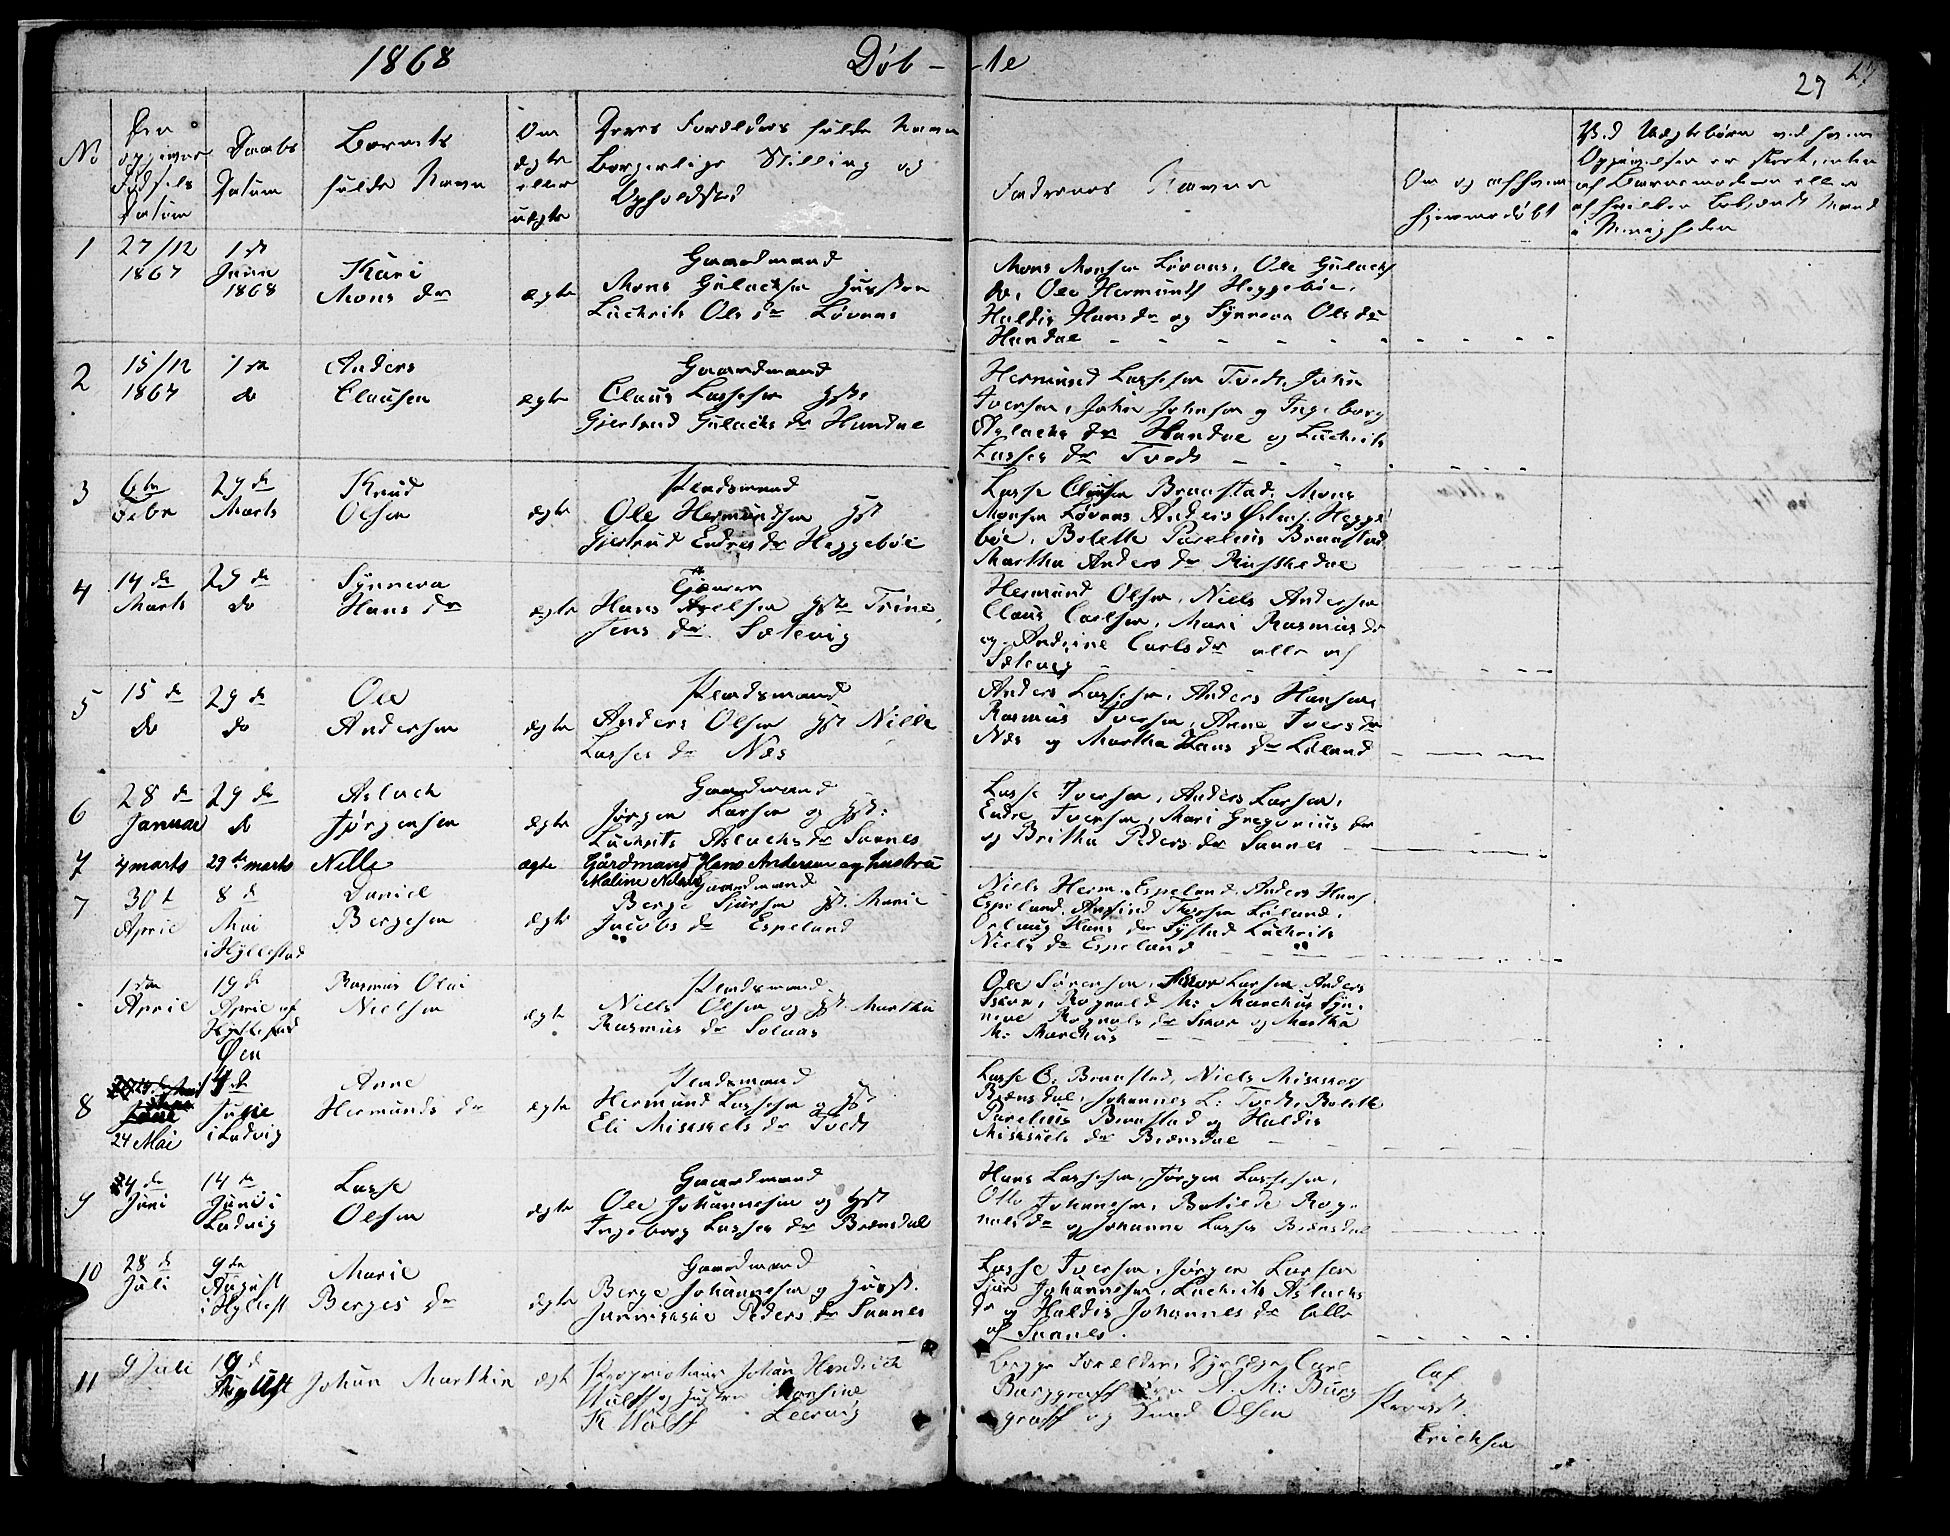 1868 Døb- -te
29
No
Den opgivne Fødsels Datum
Daabs Datum
Barnets fulde Navn
Om ægte eller uægte
Deres Forældres fulde Navn
Borgerlige Stilling og
Opholdsted
Faddernes Navne
Om og af hvem hjemmedøbt
Ved Uægtebørn ved hvem
Opgivelsen er skeet, enten
af Barnemoderen eller
af hvilken bekjendt Mand
i Menigheden
1
27/12 1867
1ste Janua 1868
Kari Mons dr
ægte
Gaardmand
Mons Gulachsen Hustru
Lüchrits Ols dr Løvaas
Mons Monsen Løvaas, Ole Gulachs
Ole Hermunds Heggebøe,
Haldis Hans dr og Synneva Ols dr
Hundae
2
15/12 1867
1ste do
Anders Clausen
ægte
Gaardmand
Claus Lassesen Hst:
Gjertrud Gulachs dr Hundae
Hermund Lassesen Tvedt, Johan
Iversen, Johan Johnsen og Ingeborg
Aslachs dr Hundae og Lüchrits
Lasses dr Tvedt
3
6te Febr
29 de Marts
Knud Olsen
ægte
Pladsmand
Ole Hermundsen Hst
Gjertrud Endres dr Heggebøe
Lasse Clausen Braastad, Mons
Monsen Løvaas Anders Hegge
bøe, Bolette Parelius Braastad
Martha Anders dr
4
14 de Marts
29 de do
Synneva Hans dr
ægte
Tjener
Hans Axelsen Hst Trine
Jens dr Sætevig
Hermund Olsen, Niels Andersen
Claus Carlsen, Mari Rasmus dr
og Andrine Carls dr alle af
Sætevig
5
15 de do
29 de do
Ole Andersen
ægte
Pladsmand
Anders Olsen Hst Nille
Lasses dr Næs
Anders Lassesen, Anders Hansen,
Rasmus Iversen, Anne Ivers dr
Næs og Martha Hans dr Leland
6
28 de Januar
29 de do
Aslach Jørgensen
ægte
Gaardmand
Jørgen Larsen og Hst:
Lüchrits Aslachs dr Sannes
Lasse Iversen, Anders Larsen,
Endre Iversen, Mari Gregorius dr
og Britha Peders dr Sannes
7
4 marts
29 de marts
Nille
ægte
Gårdmand Hans Andersen og hustru
Maline Nels
7
30 te April
8 de Mai i Hyllestad
Daniel Bergesen
ægte
Gaardmand
Berge Sjursen Hst: Marie
Jacobs dr Espeland
Niels Herm. Espeland, Anders Hans
Espeland, Leland,
Hans dr Systad Lüchrits
Niels dr Espeland
1ste April
19 de April af Hyllestad Øen
Rasmus Olai Nielsen
ægte
Pladsmand
Niels Olsen og Hst Martha
Rasmus dr Solaas
Ole Sørensen, Larsen Anders
Rognald M: Marchus Syn-
neve Rognals dr Skor og Martha
M: Marchus
8
24 Mai
i Ladvig
Anne Hermunds dr
ægte
Pladsmand
Hermund Lassesen og Hst
Eli Mikkels dr Tvedt
Lasse C. Braastad, Niels Mikkels
Brænsdal, Johannes L: Tvedt, Bolette
Parelius Braastad og Haldis
Mikkels dr Brænsdal
9
Juni
14 de Juni i Ladvig
Lasse Olsen
ægte
Gaardmand
Ole Johannesen og Hst
Ingeborg Lasses dr Brænsdal
Hans Lassesen, Jørgen Lassesen,
Otto Johannesen, Botilde Rog-
nals dr og Johanne Lasses Brænsdal
10
28 de Juli
9 de August i Hyllest
Marie Berges dr
ægte
Gaardmand
Berge Johannesen og Hust.
Jannikkie Peders dr Sannes
Lasse Iversen, Jørgen Larsen
Sjur Johannesen, Lüchrits Aslachs
dr og Haldis Johannes dr alle
af Sannes.
11
9 Juli
August
Johan Marthin
ægte
Proprietair Johan Hendrich
Wulff og Hustru
K Wulff Leervig
Begge Forældre, Carl
Burggraff A. M: Burg
graff og Knud Olsen
af
Præst.
Erichsen